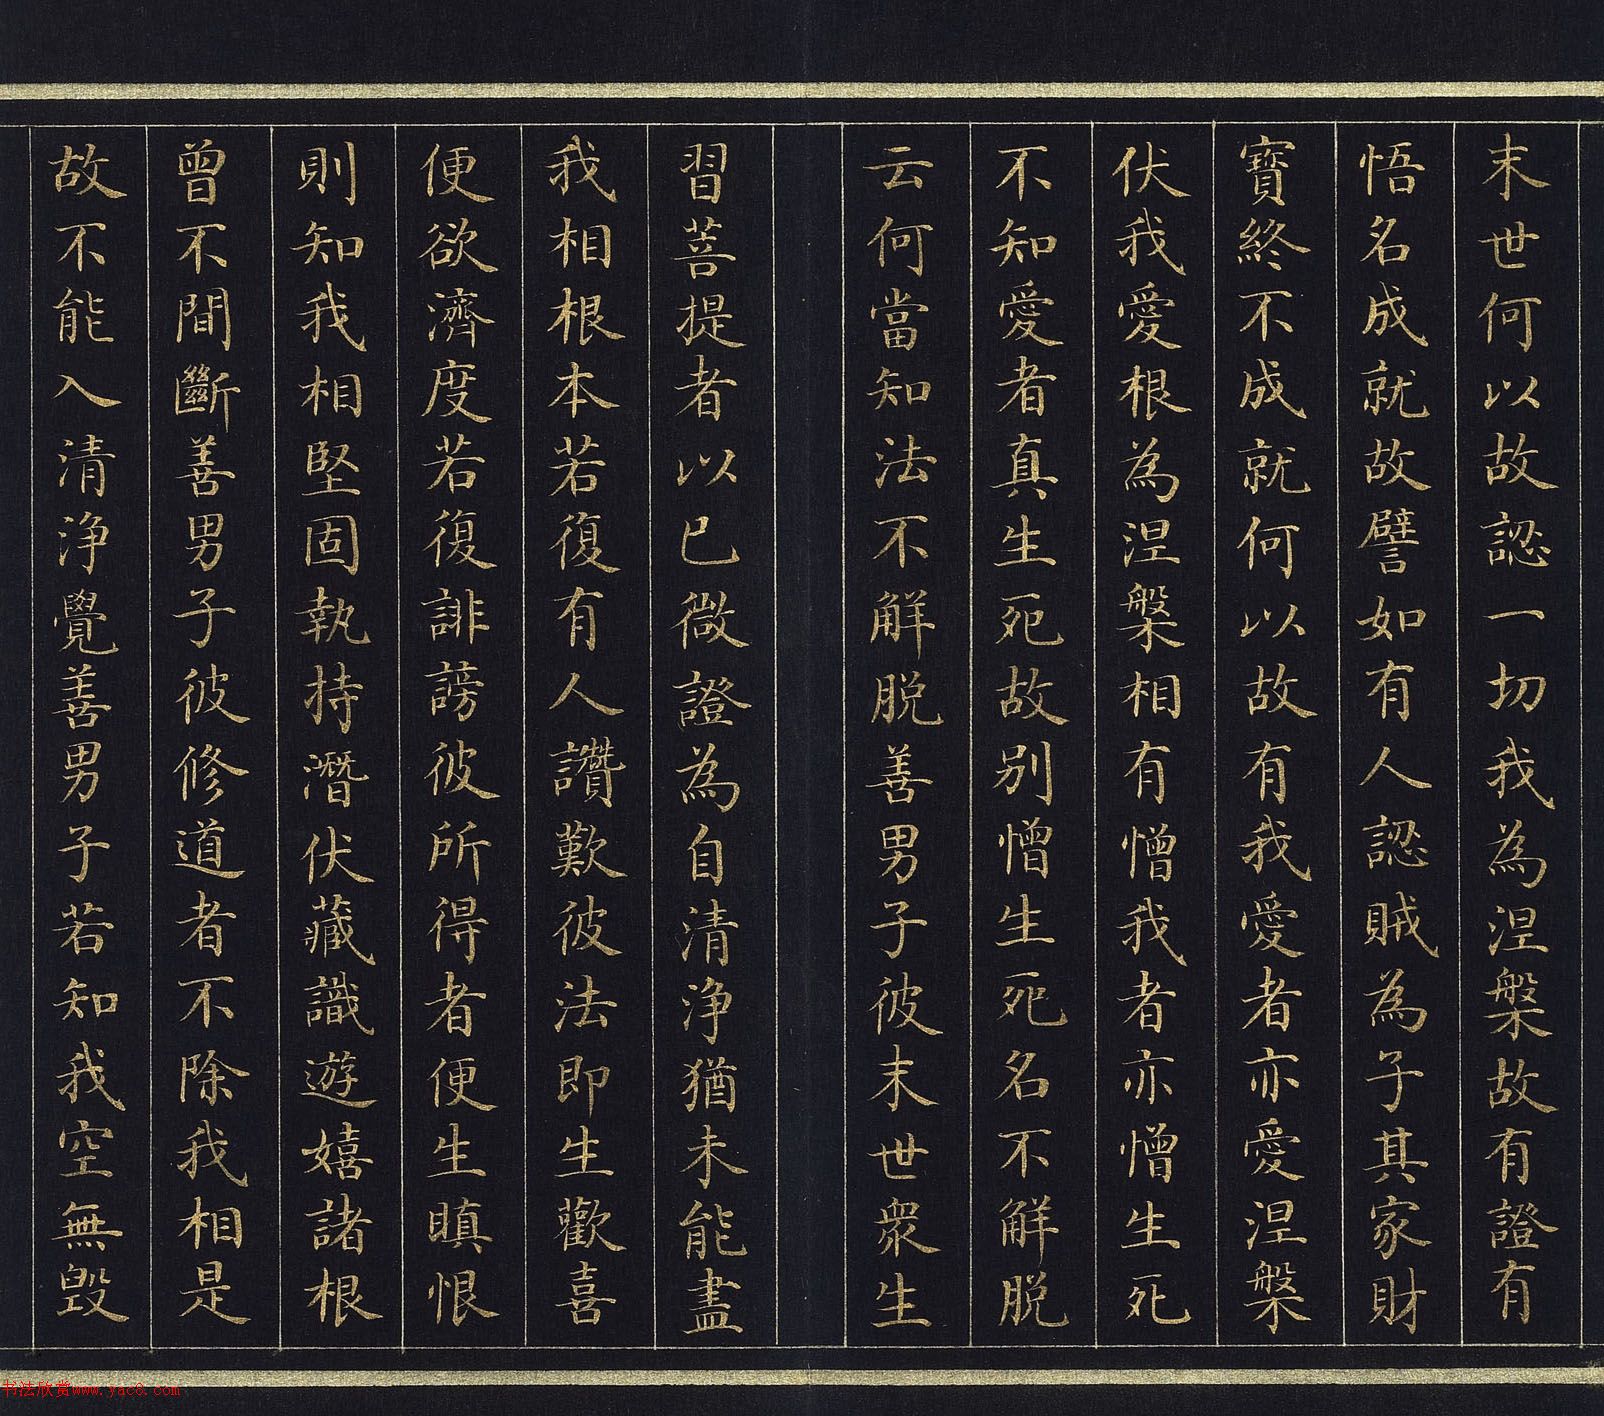 末世何以故認一切我為涅槃故有證有
悟名成就故譬如有人認賊為子其家財
寶終不成就何以故有我愛者亦愛涅槃
伏我愛根為涅槃相有憎我者亦憎生死
不知愛者真生死故别憎生死名不解脱
云何當知法不解脱善男子彼末世衆生
習菩提者以已微證為自清淨猶未能盡
我相根本若復有人讚歎彼法即生歡喜
便欲濟度若復誹謗彼所得者便生瞋恨
則知我相堅固執持潛伏藏識遊嬉諸根
曾不間斷善男子彼修道者不除我相是
故不能入清淨覺善男子若知我空無毀
书法欣赏www.yac8.com